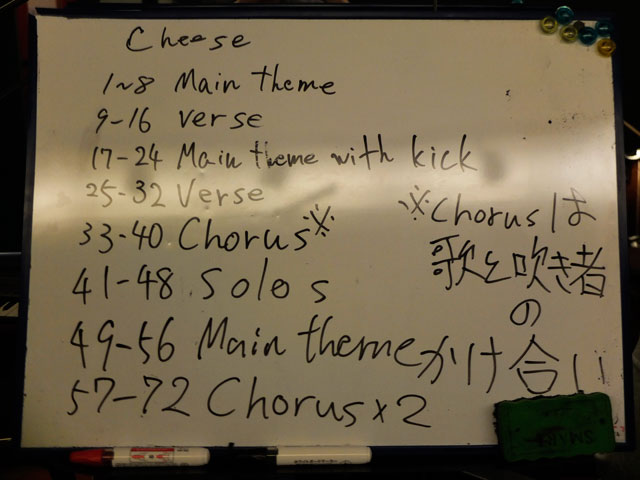 Cheese
1~8 Main theme
9-16 verse
17-24 Main theme with kick
25-32 Verse
33-40 Chorus※
41-48 Solos
49-56 Main theme
57-72 Chorus×2
※Chorusは
歌と吹き者
の
かけ合い
SMART